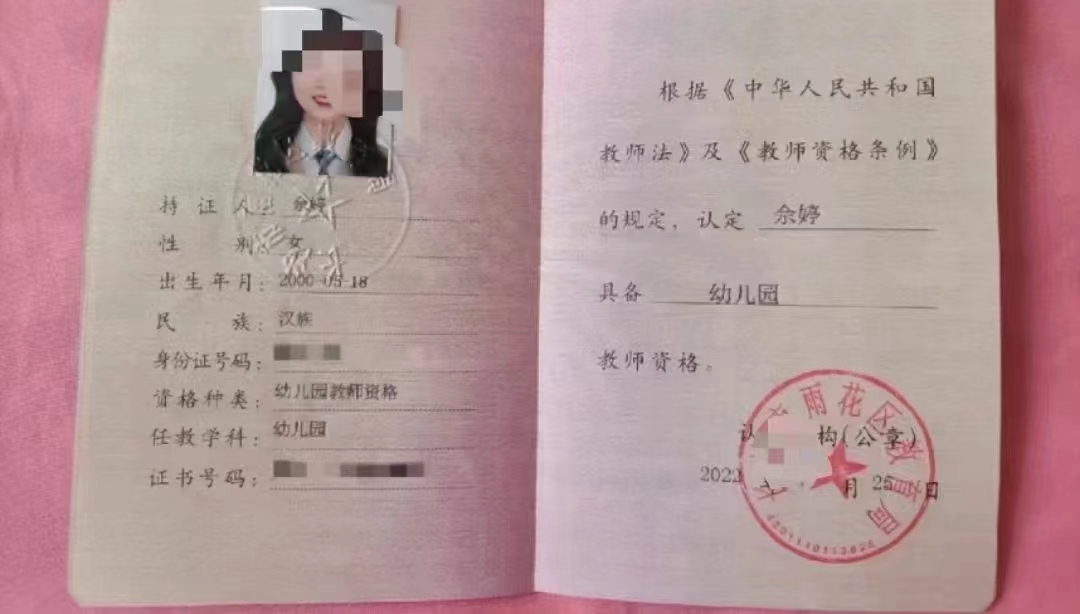 持证人
佘婷
性别：女
出生年月：2000-05-18
民族：汉族
身份证号码：
资格种类：幼儿园教师资格
任教学科：幼儿园
证书号码：
根据《中华人民共和国
教师法》及《教师资格条例》
的规定，认定 佘婷
具备 幼儿园
教师资格。
雨花区教育局
构(公章)
2022 月 25 日